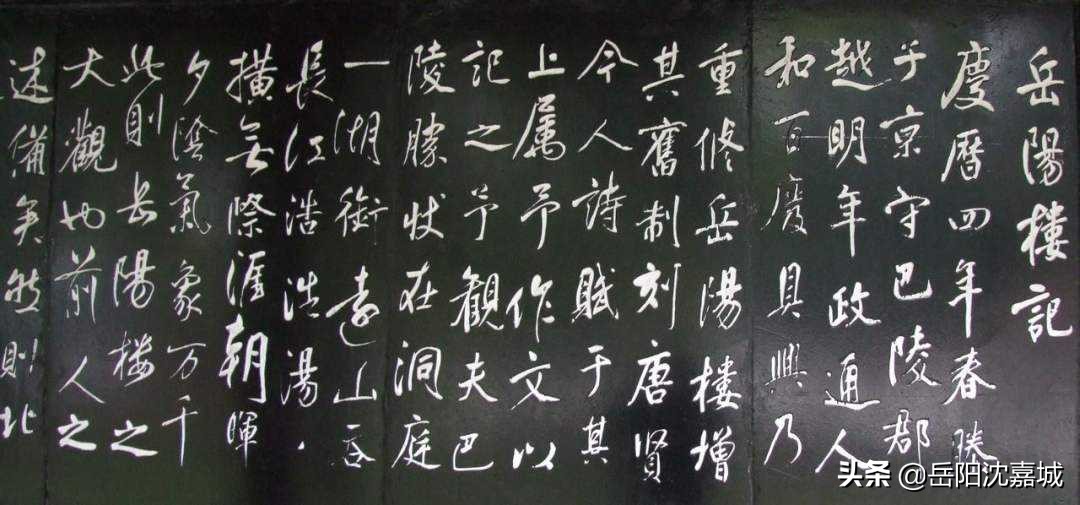 岳陽樓記
慶曆四年春滕
子京守巴陵郡
越明年政通人
和百廢具興乃
重修岳陽樓增
其舊制刻唐賢
今人詩賦于其
上属予作文以
記之予觀夫巴
陵勝狀在洞庭
一湖銜遠山吞
長江浩浩湯、
橫無際涯朝暉
夕陰氣象万千
此則岳陽楼之
大觀也前人之
述備矣然則北
头条 @岳阳沈嘉城